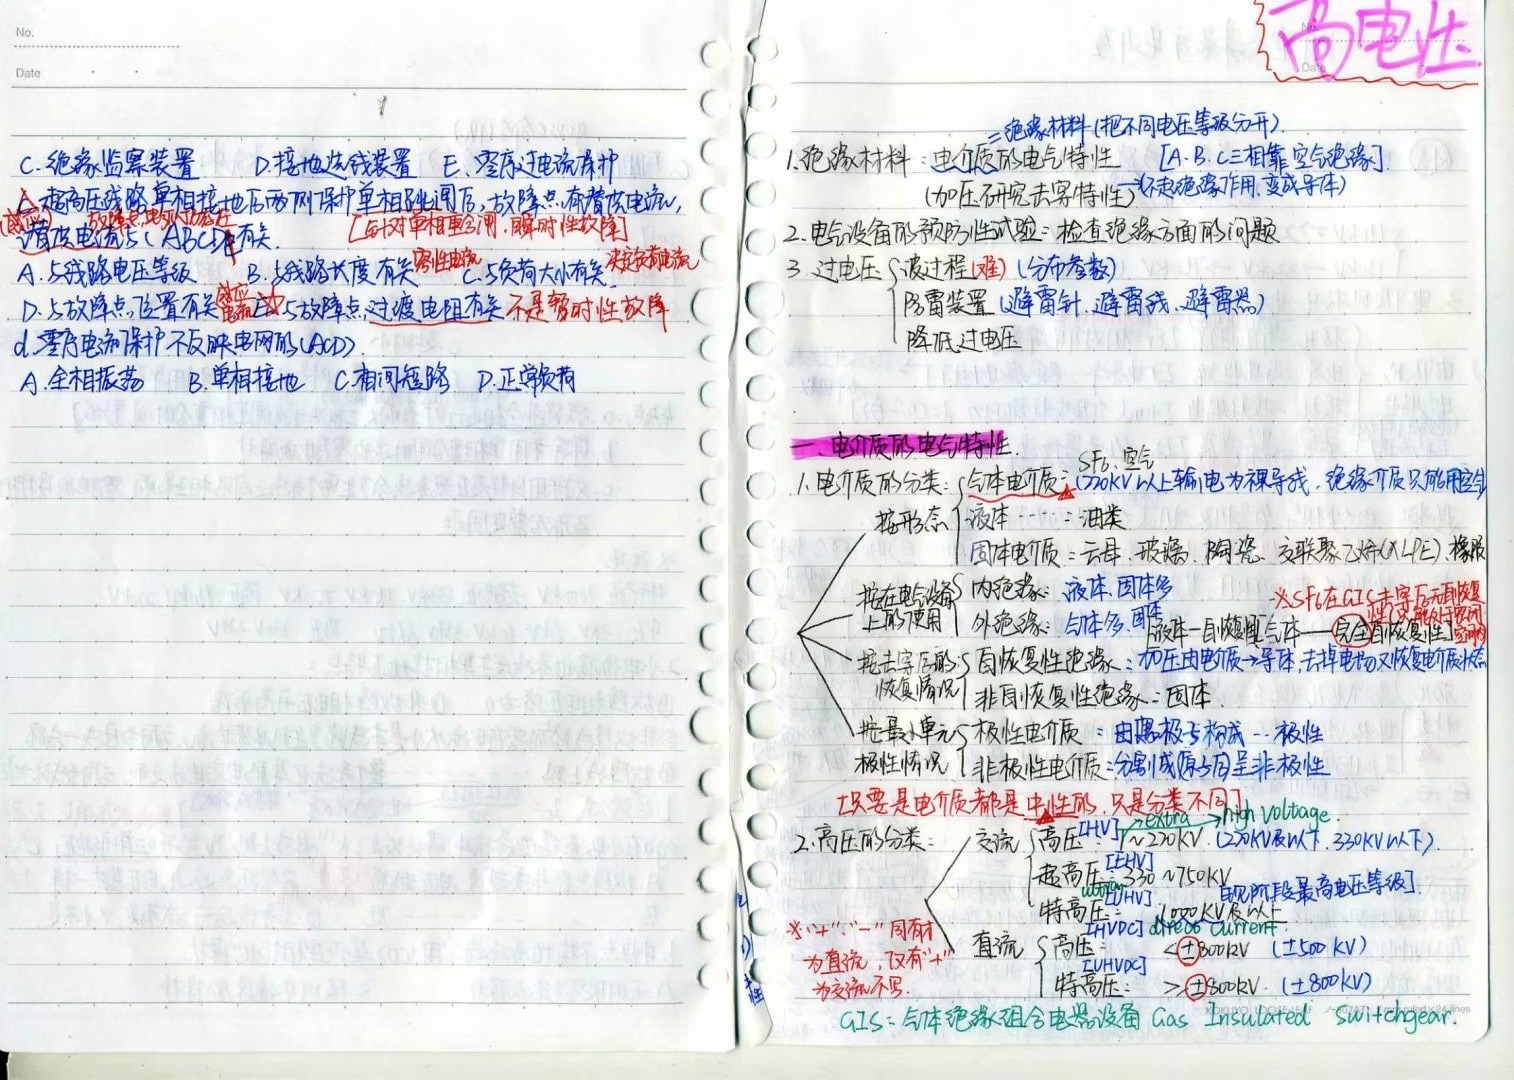 No.
Date
C.绝缘监察装置 D.接地选线装置 E.零序过电流保护
C.超高压线路单相接地后两侧保护单相跳闸后,故障点有潜供电流,
潜供电流与(ABCD)有关. [针对单相重合闸,瞬时性故障]
A.与线路电压等级 B.与线路长度有关 容性电流 C.与负荷大小有关 决定负荷电流
D.与故障点位置有关 E.与故障点过渡电阻有关 不是暂时性故障
d.零序电流保护不反映电网的(ACD).
A.全相振荡 B.单相接地 C.相间短路 D.正常负荷
高电压
No.
Date
=绝缘材料(把不同电压等级分开).
1.绝缘材料:电介质的电气特性 [A.B.C三相靠空气绝缘].
(加压研究击穿特性)→不起绝缘作用,变成导体)
2.电气设备的预防性试验:检查绝缘方面的问题
3.过电压 波过程(难) (分布参数)
防雷装置 (避雷针.避雷线.避雷器)
降低过电压
一.电介质的电气特性.
SF6.空气
1.电介质的分类: 气体电介质: (220KV以上输电为裸导线,绝缘介质只能用空气
按形态 液体……:油类
固体电介质:云母.玻璃.陶瓷.交联聚乙烯(XLPE).橡胶
按在电气设备上的使用 内绝缘:液体.固体多
外绝缘:气体多.固体
※SF6在GIS击穿后无自恢复
[液体—自恢复性 气体——完全自恢复性]
按击穿后的恢复情况 自恢复性绝缘:加压由电介质→导体,去掉电场又恢复电介质状态
非自恢复性绝缘:固体.
按最小单元极性情况 极性电介质:由偶极子构成…极性
非极性电介质:分割成原子后呈非极性
[只要是电介质都是中性的,只是分类不同]
extra high voltage.
2.高压的分类: 交流 高压:[HV] 1~220KV.(220KV及以下.330KV以下)
超高压:[EHV] 330~750KV
ultra
特高压:[UHV] 1000KV及以上 [现阶段最高电压等级].
direct current.
直流 高压:[HVDC] <±800KV (±500KV)
特高压:[UHVDC] ≥±800KV.(±800KV)
※"+""-"同有才
为直流,仅有"+"
为交流不写.
GIS:气体绝缘组合电器设备 Gas Insulated switchgear.